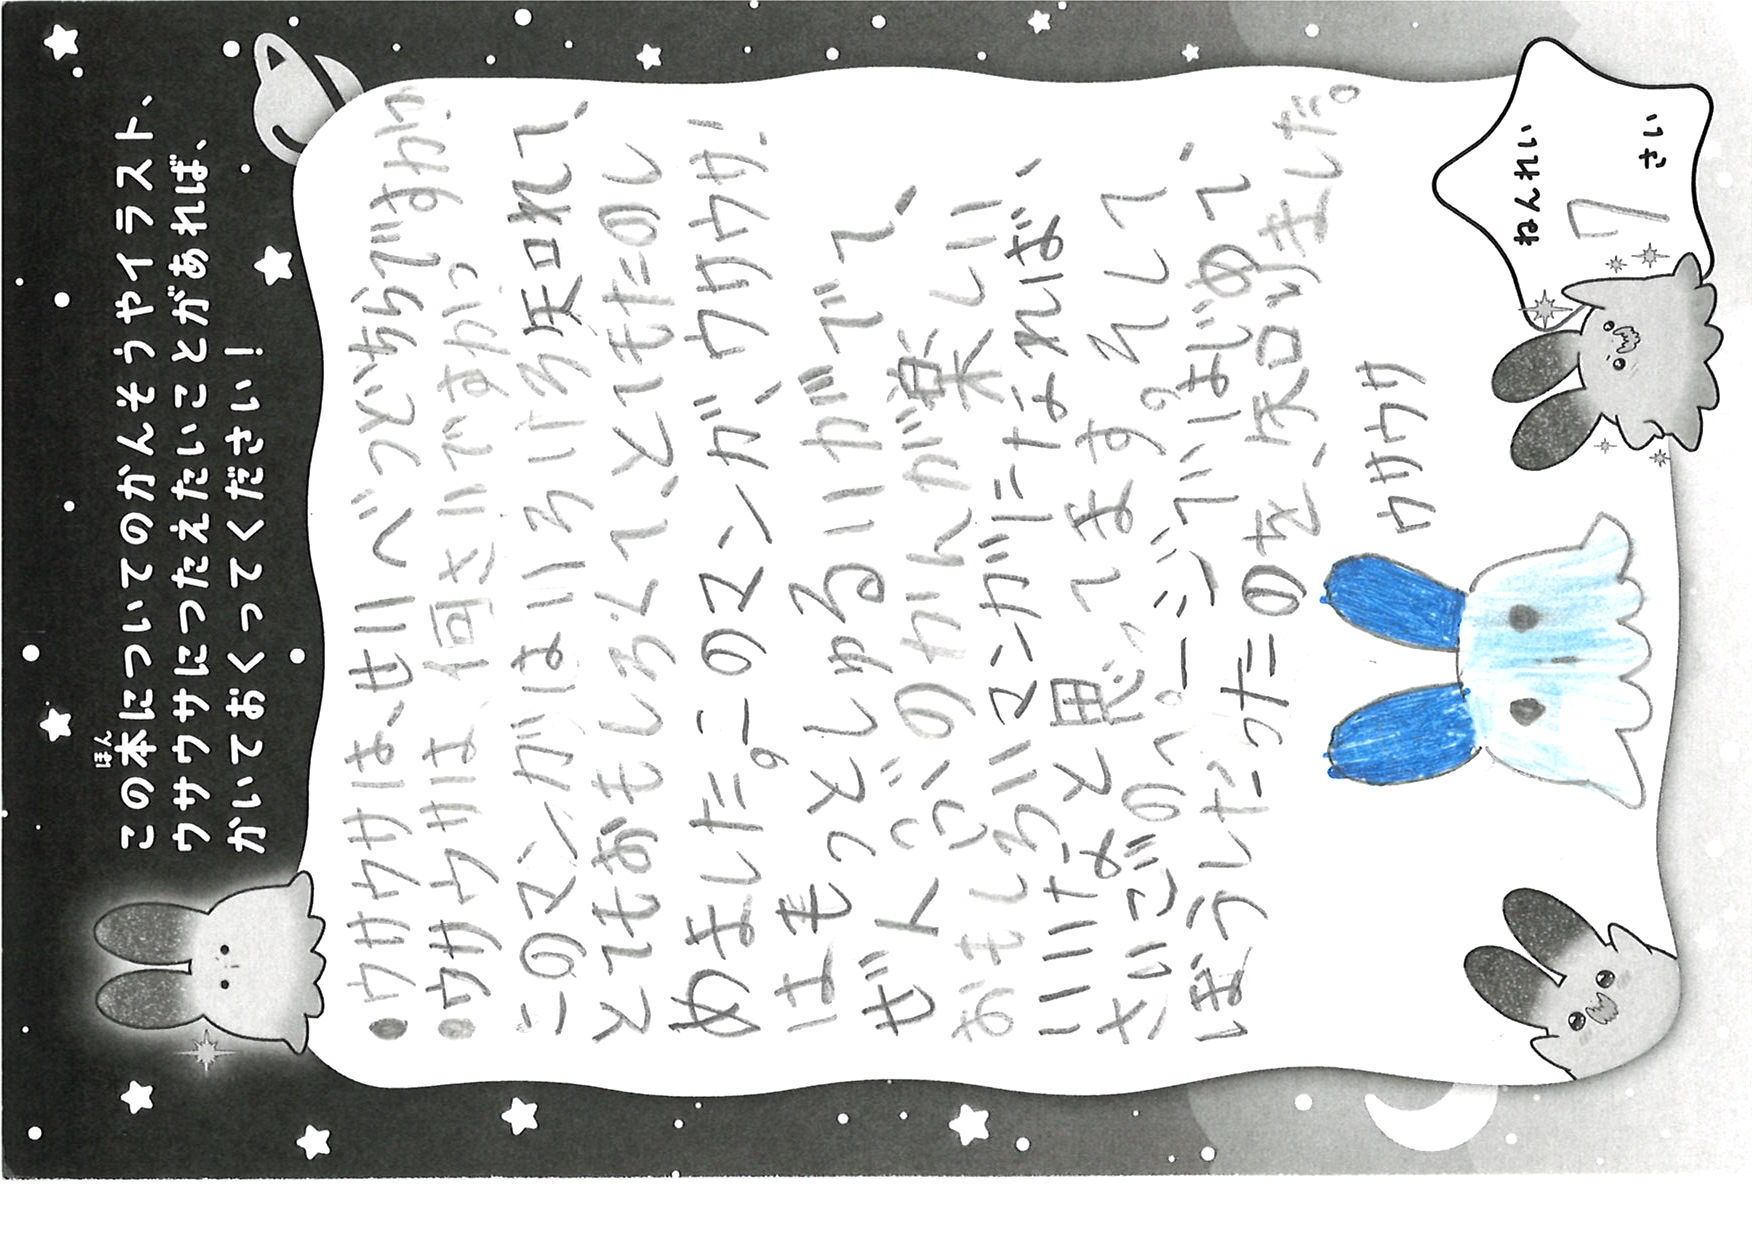 この本についてのかんそうやイラスト、
ほん
ウサウサにつたえたいことがあれば、
かいておくってください！
●ウサウサは、せいべつどちらですか?
●ウサウサは、何さいですか?
このマンガはいろいろ知れて、
とてもおもしろくて、とてもたのし
めました。このマンガ、ウサウサ!
はもっとしゅるいがでて、
ぜんぶのかんが楽しい
おもしろいマンガになれば、
いいなと思ってます。そして
さいごのページで、はじめて
ぼうしだったのを、知りました。
ウサウサ
ねんれい
7さい